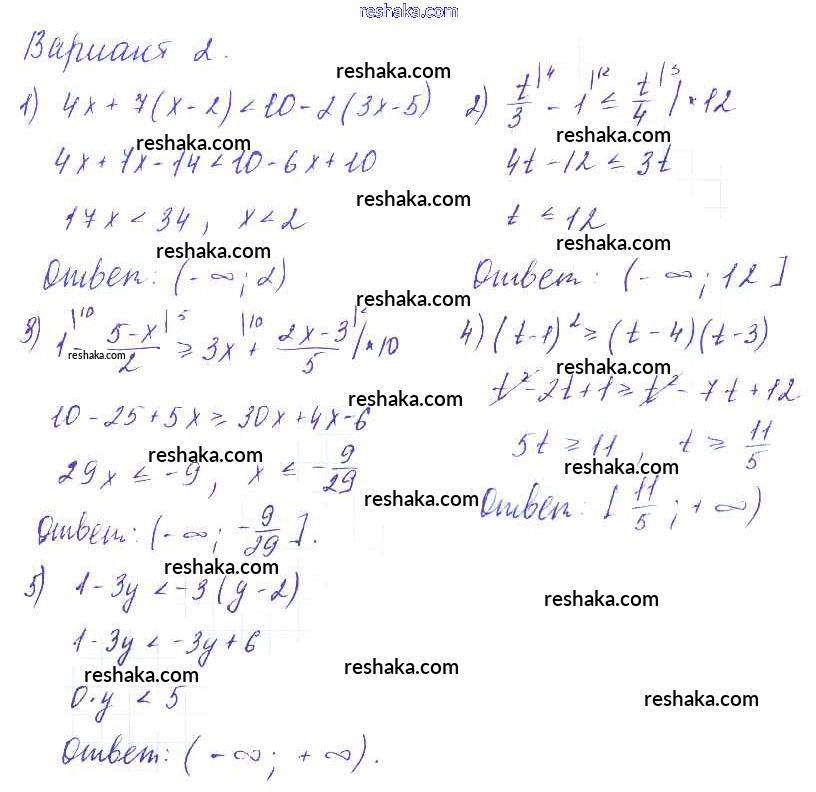 reshaka.com
Вариант 2.
reshaka.com
1) 4x + 7(x - 2) < 10 - 2(3x - 5)
reshaka.com
4x + 7x - 14 < 10 - 6x + 10
reshaka.com
17x < 34, x < 2
reshaka.com
Ответ: (-∞; 2)
2) t/3 |4 - 1 |12 ≤ t/4 |3 | * 12
reshaka.com
4t - 12 ≤ 3t
t ≤ 12
reshaka.com
Ответ: (-∞; 12]
reshaka.com
3) 1 |10 - (5-x)/2 |5 ≥ 3x |10 + (2x-3)/5 |2 | * 10
reshaka.com
10 - 25 + 5x ≥ 30x + 4x - 6
reshaka.com
reshaka.com
29x ≤ -9, x ≤ -9/29
reshaka.com
Ответ: (-∞; -9/29].
4) (t-1)² ≥ (t-4)(t-3)
reshaka.com
t² - 2t + 1 ≥ t² - 7t + 12
5t ≥ 11, t ≥ 11/5
reshaka.com
Ответ: [11/5; +∞)
reshaka.com
5) 1 - 3y < -3(y - 2)
reshaka.com
1 - 3y < -3y + 6
reshaka.com
reshaka.com
0·y < 5
reshaka.com
Ответ: (-∞; +∞).